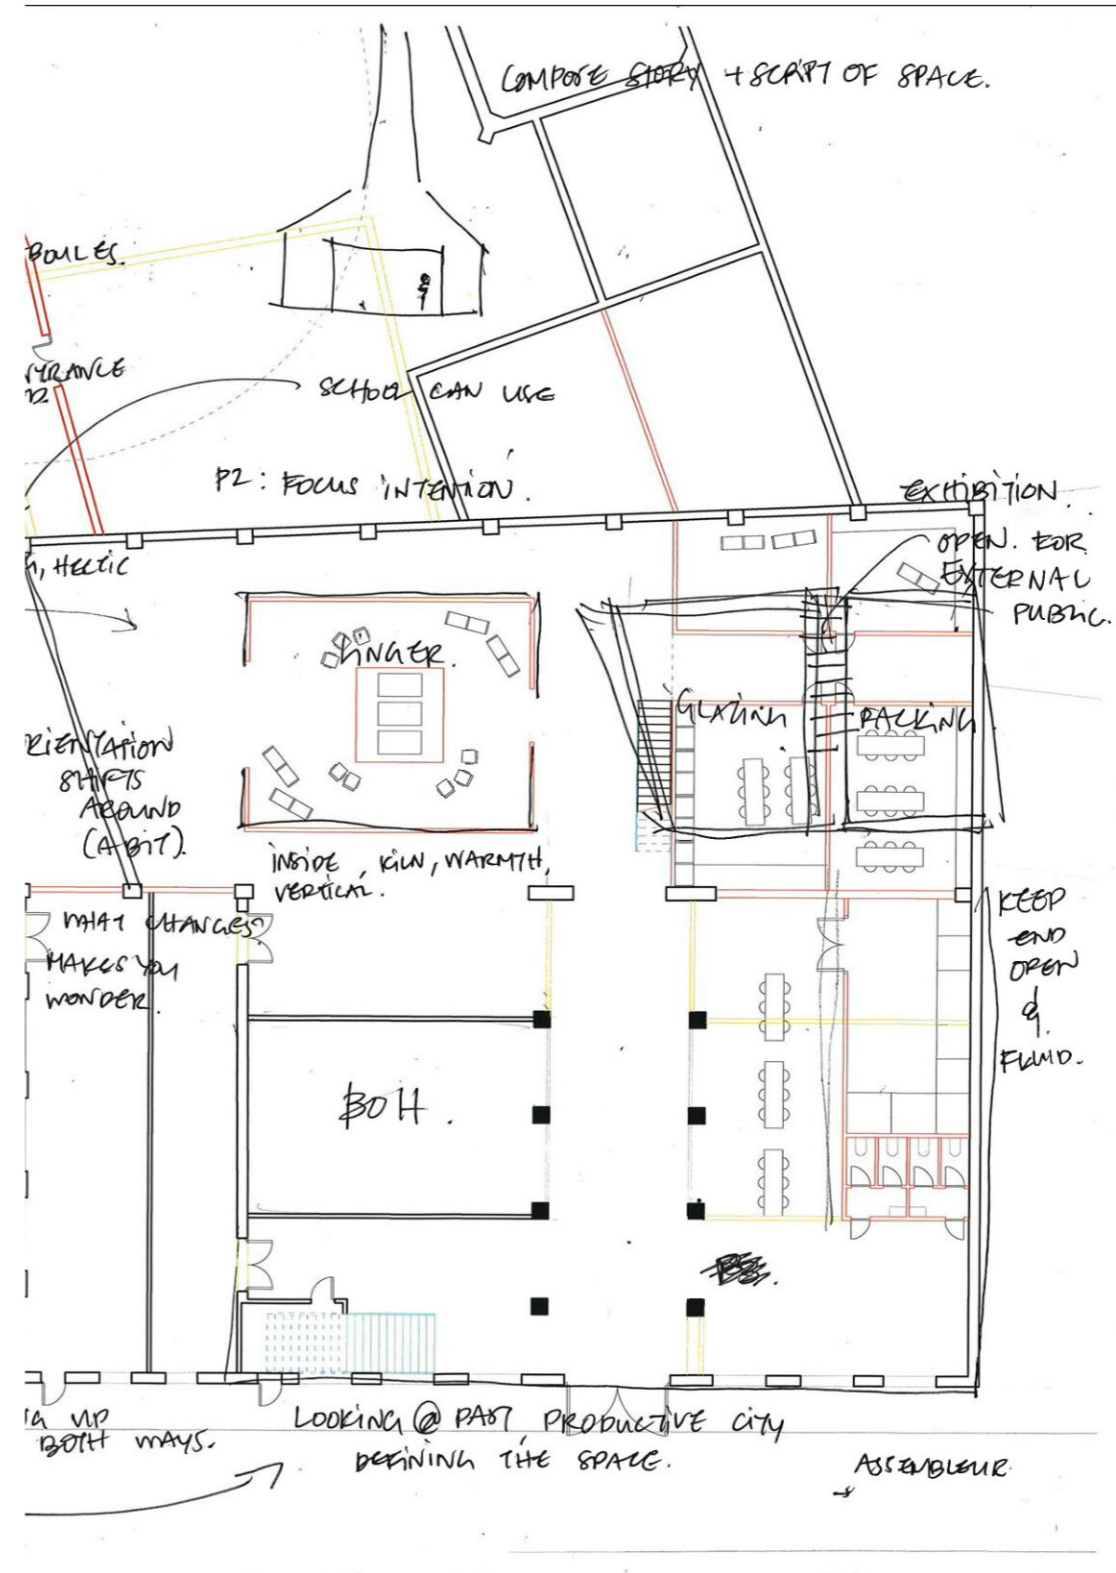 COMPOSE STORY + SCRIPT OF SPACE.
BOULES.
SCHOOL CAN USE
P2: FOCUS INTENTION.
EXHIBITION.
OPEN. FOR
EXTERNAL
PUBLIC.
, HECTIC
GINGER.
GLAZING
PACKING
RIENTATION
SHIFTS
AROUND
(A BIT).
INSIDE, KILN, WARMTH,
VERTICAL.
WHAT CHANGES?
MAKES YOU
WONDER.
KEEP
END
OPEN
&
FLUID.
BOH.
UP
BOTH WAYS.
LOOKING @ PAST, PRODUCTIVE CITY
DEFINING THE SPACE.
ASSEMBLEUR